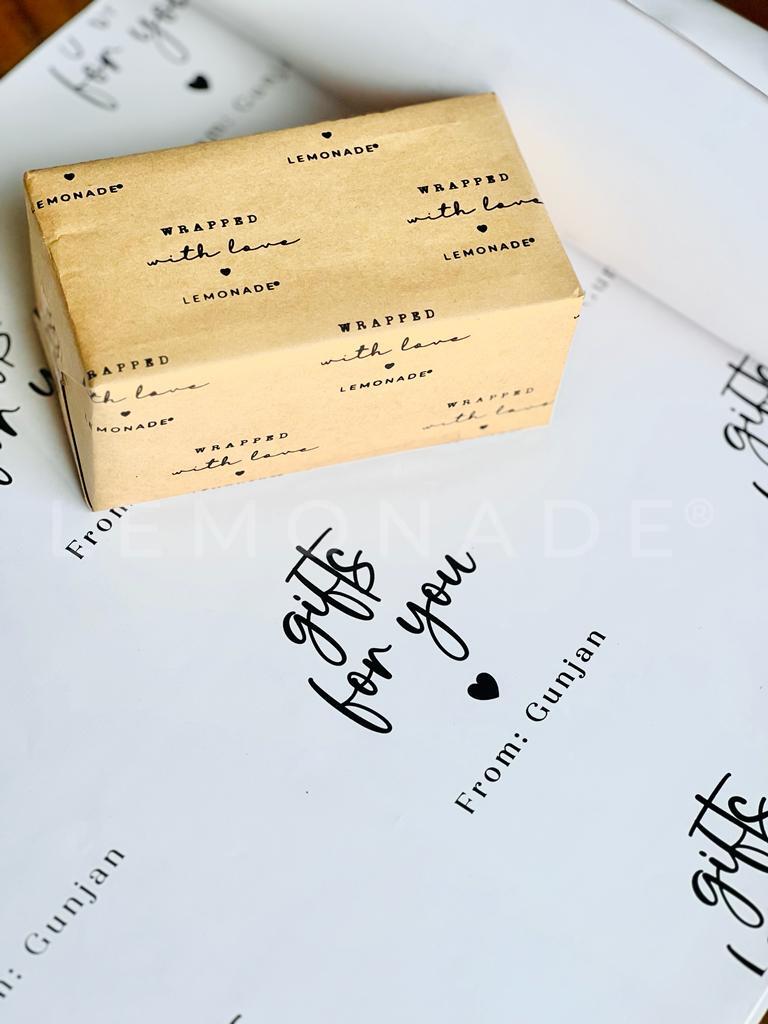 for you
LEMONADE®
EMONADE®
WRAPPED
with love
LEMONADE®
WRAPPED
with love
LEMONADE®
WRAPPED
with love
LEMONADE®
RAPPED
love
MONADE®
WRAPPED
with love
WRAPPED
with love
From
LEMONADE®
gifts
for you
From: Gunjan
gifts
gifts
Gunjan